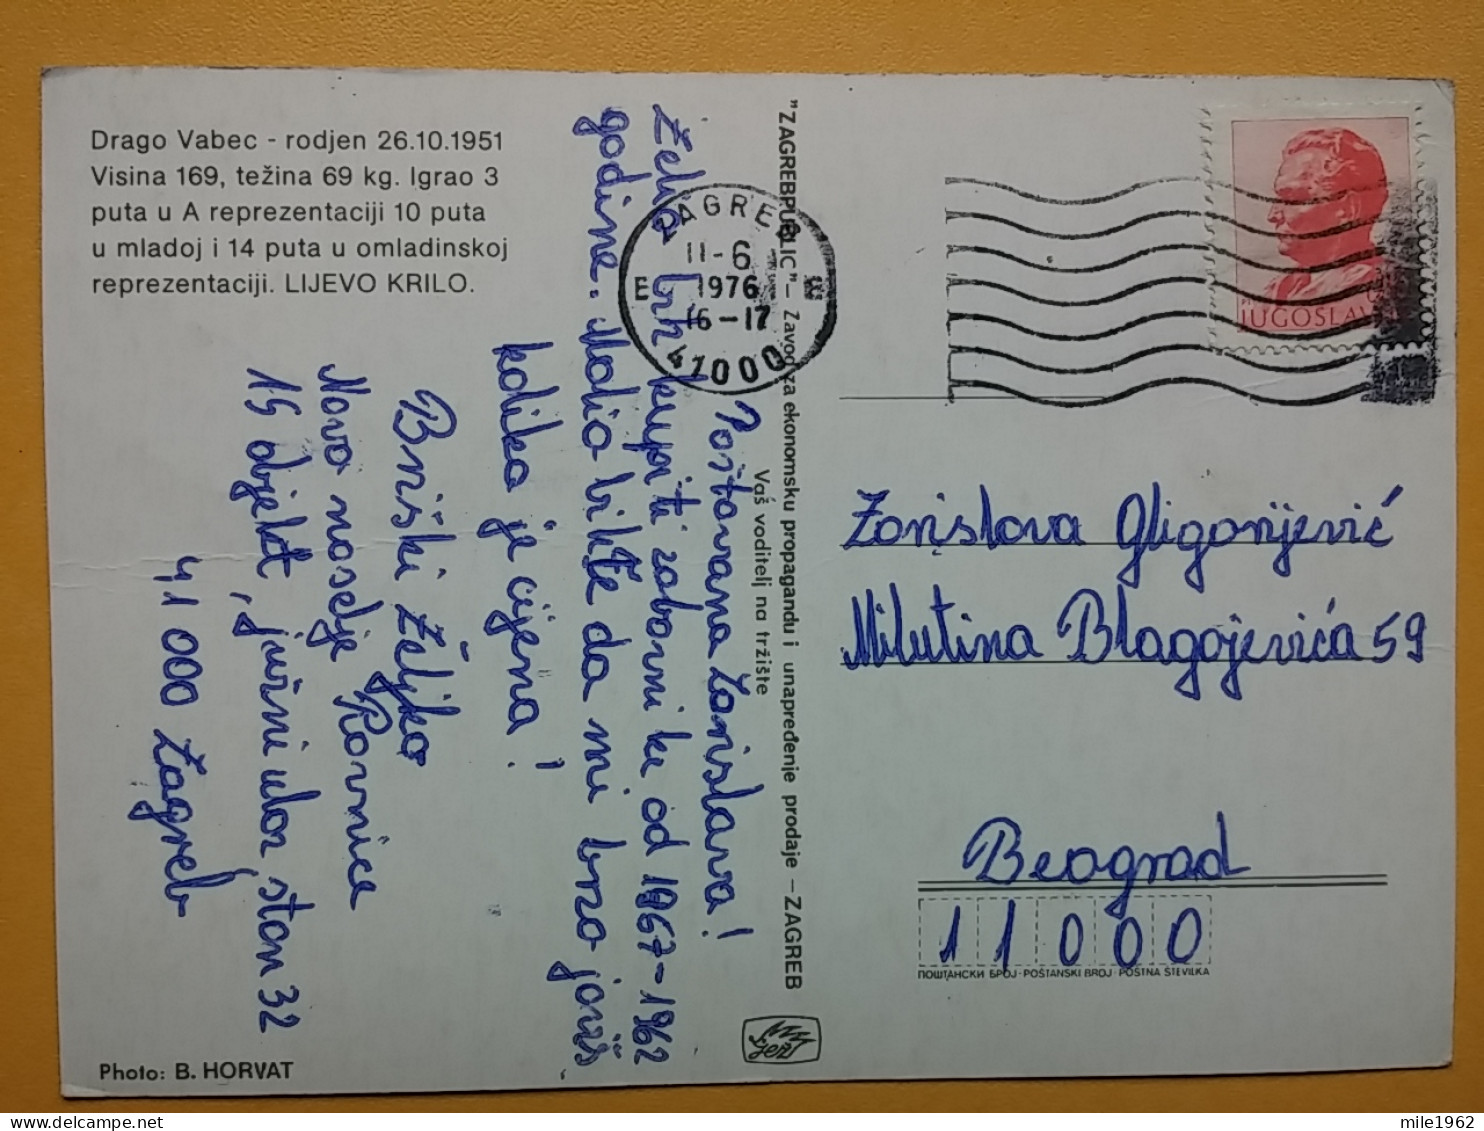 Drago Vabec - rodjen 26.10.1951
Visina 169, težina 69 kg. Igrao 3
puta u A reprezentaciji 10 puta
u mladoj i 14 puta u omladinskoj
reprezentaciji. LIJEVO KRILO.
Poštovana Zorislava!
Želio bih kupiti zabavnike od 1967-1962
godine. Molio bih Te da mi brzo javiš
kolika je cijena!
Briški Željko
Novo naselje Ravnice
15 objekt, južni ulaz, stan 32
41000 Zagreb
Photo: B. HORVAT
"ZAGREBPUBLIC" – Zavod za ekonomsku propagandu i unapređenje prodaje – ZAGREB
Vaš voditelj na tržište
ZAGREB
11-6
E 1976 E
16-17
41000
JUGOSLAV
Zorislava Gligorijević
Milutina Blagojevića 59
Beograd
11000
ПОШТАНСКИ БРОЈ · POŠTANSKI BROJ · POŠTNA ŠTEVILKA
mile1962